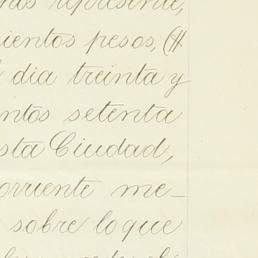 represente,
cientos pesos, (#
dia treinta y
ntos setenta
sta Ciudad,
orriente me-
sobre lo que